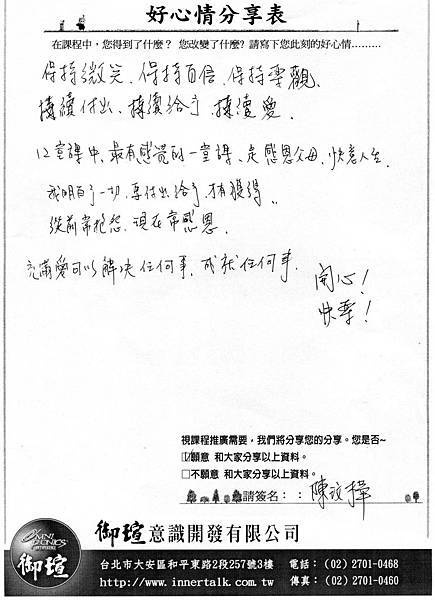 好心情分享表
在課程中，您得到了什麼？ 您改變了什麼? 請寫下您此刻的好心情………
保持微笑、保持自信、保持樂觀、
持續付出、持續給予、持續愛.
12堂課中、最有感覺的一堂課、是感恩父母、快意人生.
我明白了一切、要付出給予、才有獲得..
從前常抱怨、現在常感恩.
充滿愛可以解决任何事、成就任何事.
開心！
快樂！
視課程推廣需要，我們將分享您的分享。您是否~
☑願意 和大家分享以上資料。
□不願意 和大家分享以上資料。
請簽名：： 陳
OMNI
御瑄
御瑄意識開發有限公司
台北市大安區和平東路2段257號3樓 電話：(02) 2701-0468
http://www.innertalk.com.tw 傳真：(02) 2701-0460